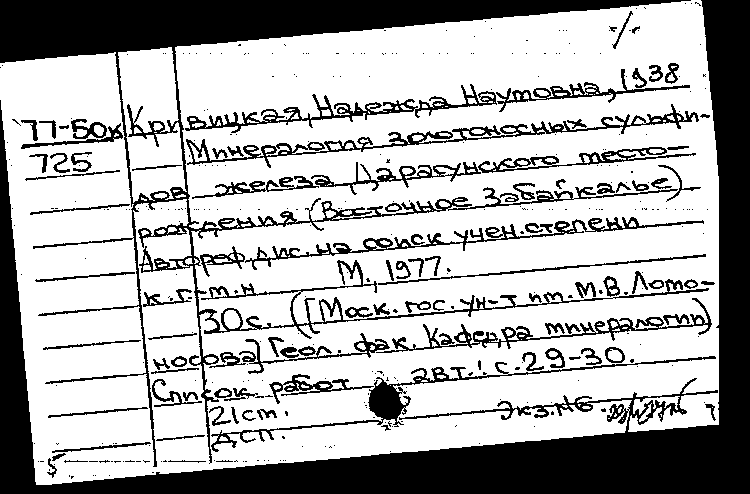 77-50к Кривицкая, Надежда Наумовна, 1938
725 Минералогия золотоносных сульфи-
дов железа Дарасунского место-
рождения (Восточное Забайкалье).
Автореф. дис. на соиск учен. степени
к.г.-м.н. М., 1977.
30с. ([Моск. гос. ун-т им. М.В. Ломо-
носова] Геол. фак. Кафедра минералогии)
Список работ авт.: с.29-30.
21см.
ДСП. Экз.№6
5